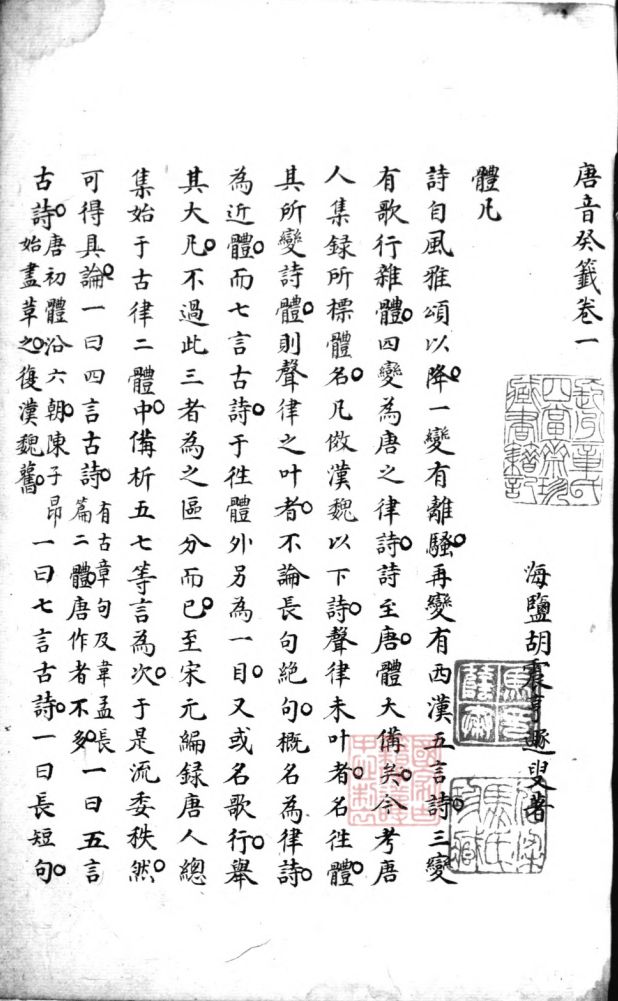 唐音癸籤卷一
海鹽胡震亨遯叟著
體凡
詩自風雅頌以降一變有離騷再變有西漢五言詩三變
有歌行雜體四變為唐之律詩詩至唐體大備矣今考唐
人集録所標體名凡倣漢魏以下詩聲律未叶者名往體
其所變詩體則聲律之叶者不論長句絕句概名為律詩
為近體而七言古詩于往體外另為一目又或名歌行舉
其大凡不過此三者為之區分而已至宋元編録唐人總
集始于古律二體中備析五七等言為次于是流委秩然
可得具論一曰四言古詩
有古章句及韋孟長
篇二體唐作者不多
一曰五言
古詩
唐初體沿六朝陳子昂
始盡革之復漢魏舊
一曰七言古詩一曰長短句